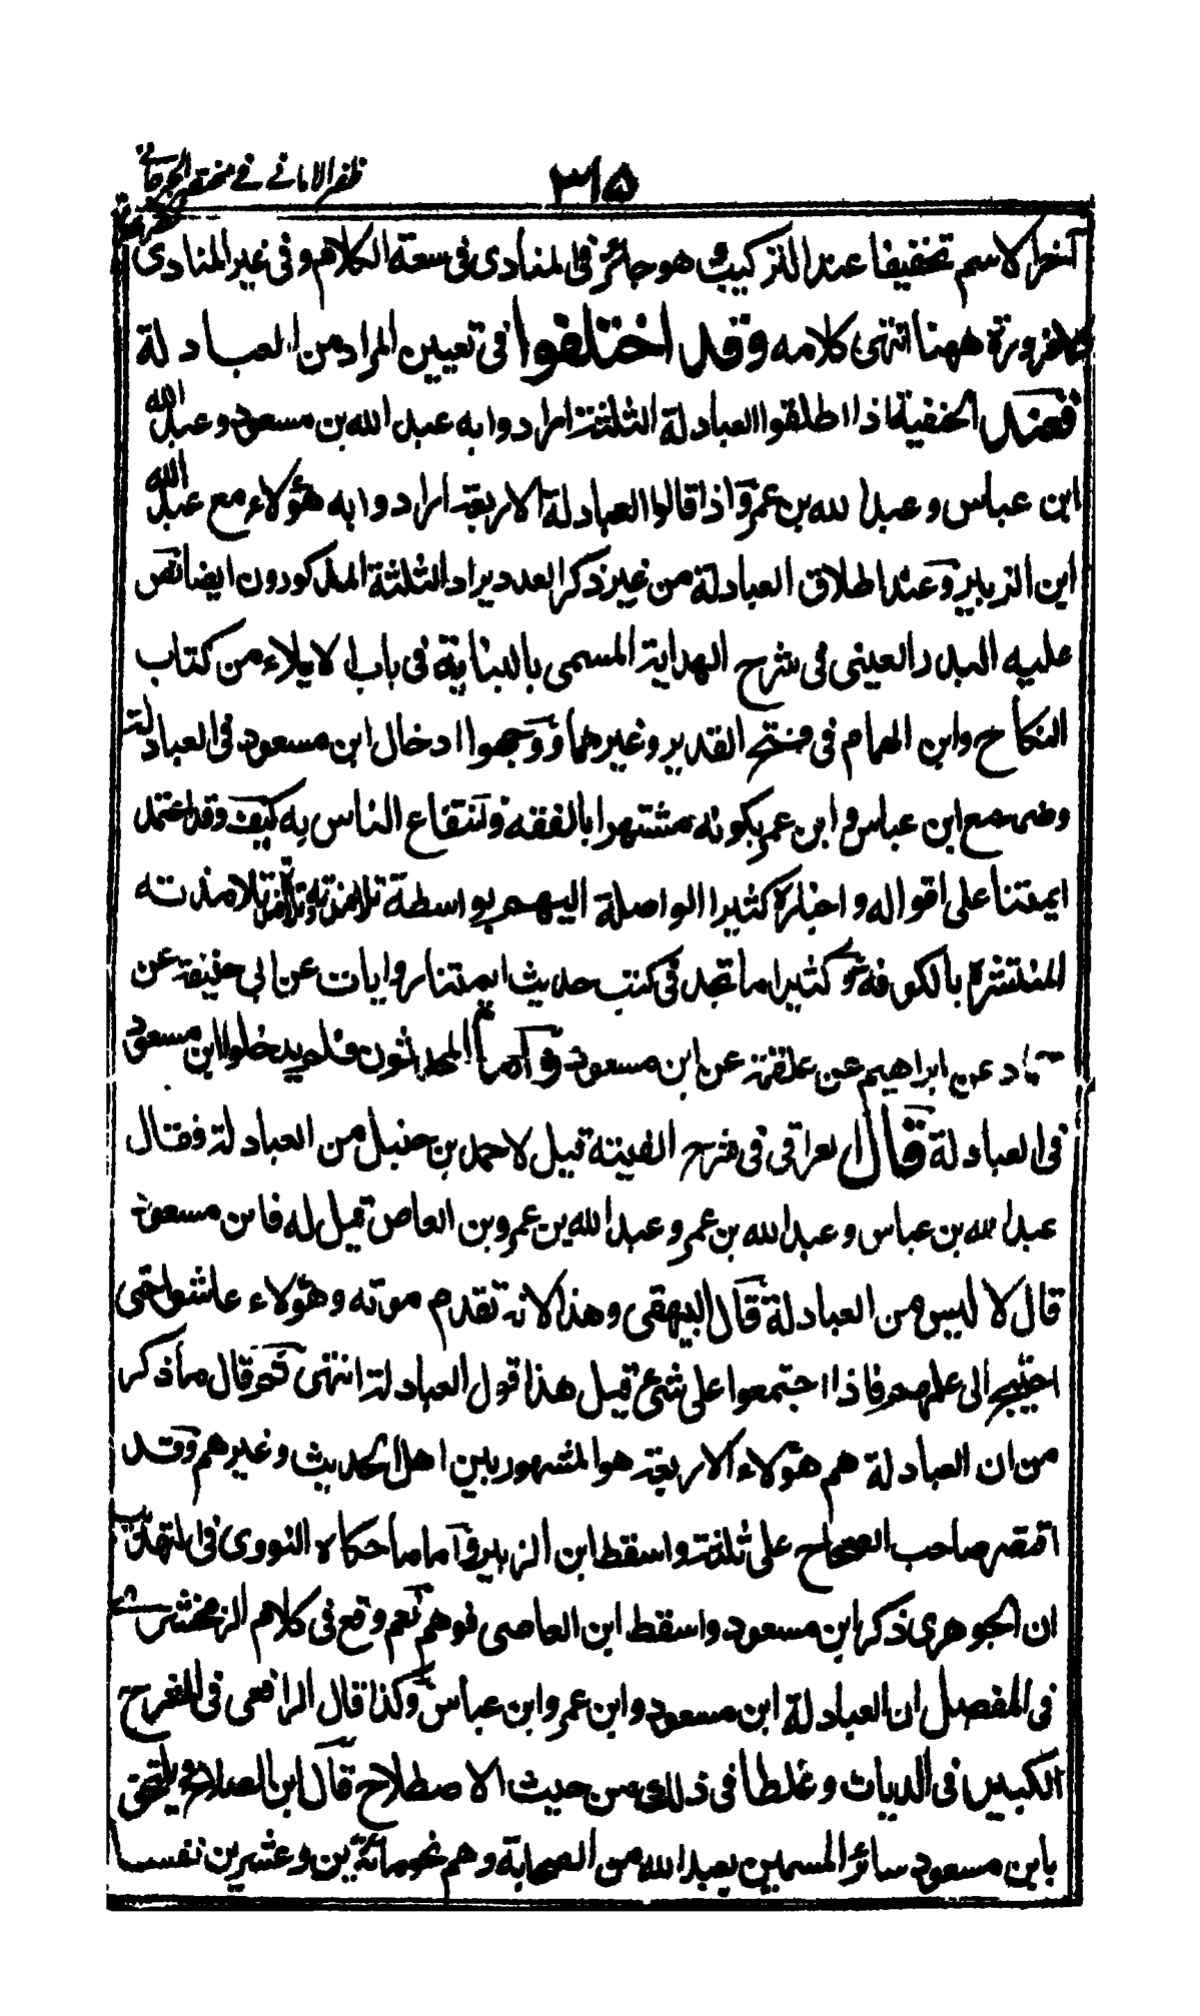 ظفر الامانے فے مختصر الجرجانے
٣١٥
آخر الاسم تخفيفا عند التركيب هو جائز في المنادى في سعة الكلام و في غير المنادى
لضرورة ههنا انتهى كلامه وقد اختلفوا في تعيين المراد من العبادلة
فعند الحنفية اذا اطلقوا العبادلة الثلثة ارادوا به عبد الله بن مسعود و عبد الله
ابن عباس و عبد الله بن عمر و اذا قالوا العبادلة الاربعة ارادوا به هؤلاء مع عبد الله
ابن الزبير و عند اطلاق العبادلة من غير ذكر العدد يراد الثلثة المذكورون ايضا نص
عليه البدر العيني في شرح الهداية المسمى بالبناية في باب الايلاء من كتاب
النكاح وابن الهمام في فتح القدير وغيرهما و وجهوا ادخال ابن مسعود في العبادلة
وضمه مع ابن عباس و ابن عمر بكونه مشتهرا بالفقه وانتفاع الناس به كيف وقد اعتمد
ايمتنا على اقواله و اخباره كثيرا الواصلة اليهم بواسطة تلامذته وتلامذة تلامذته
المنتشرة بالكوفة و كثيرا ما تجد في كتب حديث ايمتنا روايات عن ابي حنيفة عن
حماد عن ابراهيم عن علقمة عن ابن مسعود و اما المحدثون فلم يدخلوا ابن مسعود
في العبادلة قال العراقي في شرح الفيته قيل لاحمد بن حنبل من العبادلة فقال
عبد الله بن عباس و عبد الله بن عمر و عبد الله بن عمرو بن العاص قيل له فابن مسعود
قال لا ليس من العبادلة قال البيهقي وهذا لانه تقدم موته وهؤلاء عاشوا حتى
احتيج الى علمهم فاذا اجتمعوا على شئ قيل هذا قول العبادلة انتهى ثم قال ما ذكر
من ان العبادلة هم هؤلاء الاربعة هو المشهور بين اهل الحديث وغيرهم وقد
اقتصر صاحب الصحاح على ثلثة و اسقط ابن الزبير و اما ما حكاه النووى في التهذيب
ان الجوهرى ذكر ابن مسعود و اسقط ابن العاصى فوهم نعم وقع في كلام الزمخشرى
في المفصل ان العبادلة ابن مسعود وابن عمر وابن عباس وكذا قال الرافعى في الشرح
الكبير في الديات وغلطا في ذلك من حيث الاصطلاح قال ابن الصلاح و يلتحق
بابن مسعود سائر المسمين بعبد الله من الصحابة وهم نحو مائتين وعشرين نفسا